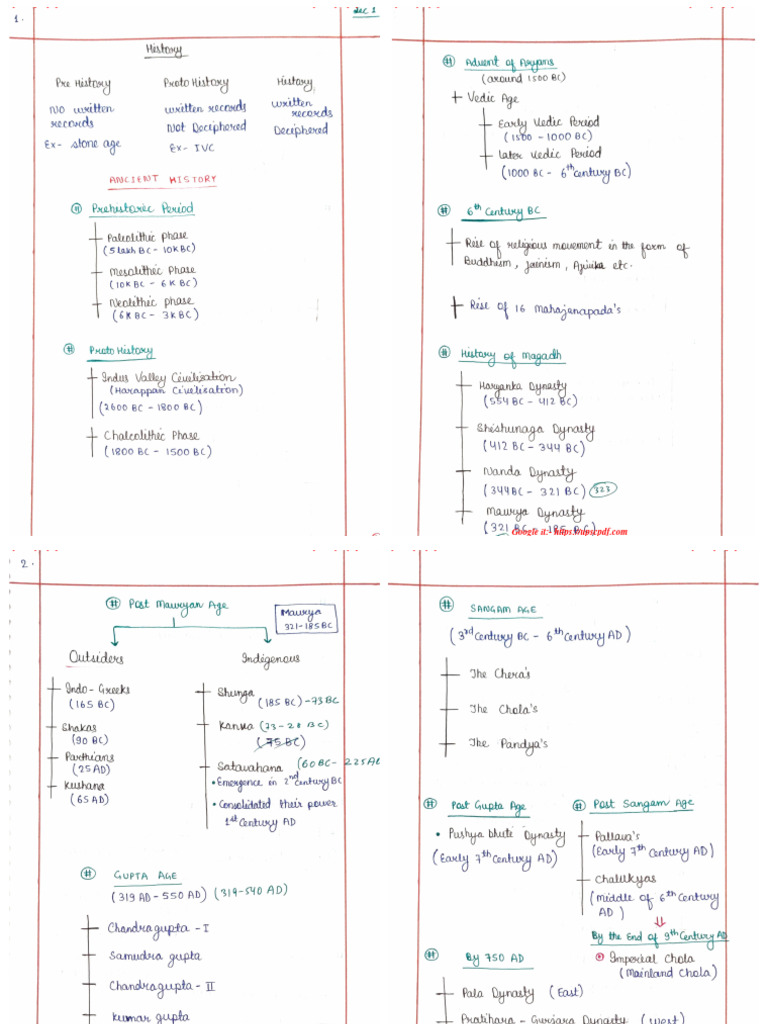 1.
Lec 1
History
Pre History
Proto History
History
No written
records
Ex- stone age
written records
Not Deciphered
Ex- IVC
written
records
Deciphered
ANCIENT HISTORY
# Prehistoric Period
Paleolithic phase
(5 lakh BC - 10K BC)
Mesolithic Phase
(10K BC - 6K BC)
Neolithic phase
(6K BC - 3K BC)
# Proto History
Indus Valley Civilisation
(Harappan Civilisation)
(2600 BC - 1800 BC)
Chalcolithic Phase
(1800 BC - 1500 BC)
# Advent of Aryans
(around 1500 BC)
+ Vedic Age
Early Vedic Period
(1500 - 1000 BC)
Later Vedic Period
(1000 BC - 6th century BC)
# 6th Century BC
Rise of religious movement in the form of
Buddhism, Jainism, Ajivika etc.
Rise of 16 mahajanapada's
# History of Magadh
Haryanka Dynasty
(554 BC - 412 BC)
Shishunaga Dynasty
(412 BC - 344 BC)
Nanda Dynasty
(344 BC - 321 BC) 323
Maurya Dynasty
(321 BC - 185 BC)
Google it:- https.//upscpdf.com
2.
# Post Mauryan Age
Maurya
321-185 BC
Outsiders
Indo-Greeks
(165 BC)
Shakas
(90 BC)
Parthians
(25 AD)
Kushana
(65 AD)
Indigenous
Shunga
(185 BC) - 73 BC
Kanva (73 - 28 BC)
(75 BC)
Satavahana (60 BC - 225 AD
• Emergence in 2nd century BC
• Consolidated their power
1st Century AD
# GUPTA AGE
(319 AD - 550 AD) (319-540 AD)
Chandragupta - I
Samudra gupta
Chandragupta - II
Kumar gupta
# SANGAM AGE
(3rd Century BC - 6th Century AD)
The Chera's
The Chola's
The Pandya's
# Post Gupta Age
• Pushya bhuti Dynasty
(Early 7th Century AD)
# Post Sangam Age
Pallava's
(Early 7th Century AD)
Chalukyas
(Middle of 6th Century
AD)
By the End of 9th Century AD
Imperial Chola
(Mainland Chola)
# By 750 AD
Pala Dynasty (East)
Pratihara - Gurjara Dynasty (West)